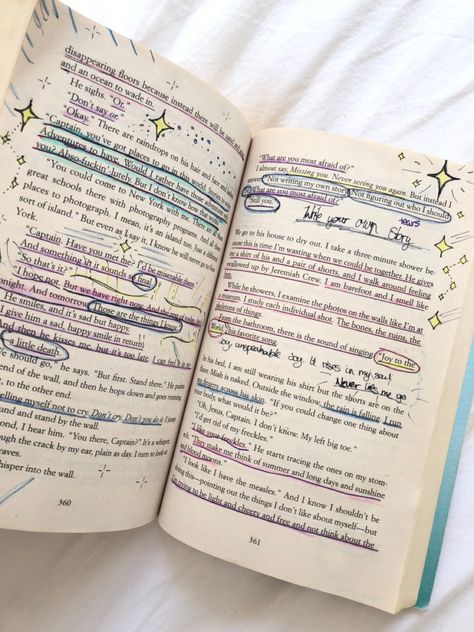 disappearing floors because instead there will be sand
and an ocean to wade in.
He sighs. "Or."
"Don't say or."
"Okay." There are raindrops on his hair and face and
"Captain, you've got places to go in this world,
Adventures to have. Would I rather have those adventures
you? Abso-fuckin'-lutely. But I don't know how that
"You could come to New York with me. There are
great schools there with photography programs. And all
places to photograph. I mean, it's an island too, just a
sort of island." But even as I say it, I know he will never go to
York.
"Captain. Have you met me? I'd be miserable
And something in it sounds so final.
"So that's it?"
"I hope not. But we have right now
night. And tomorrow. Those are the things I know."
He smiles, and it's sad but happy.
I give him a sad, happy smile in return.
And then he kisses me, but it's too late. I can feel it in
a little death.
we should go," he says. "But first. Stand there." He points
, to the other end.
end of the wall, and then he hops down and goes running
telling myself not to cry. Don't cry. Don't you do it. I jump
around and stand by the wall.
I hear him. "You there, Captain?" It's a whisper
through the crack by my ear, plain as day. I turn to look at
waves.
whisper into the wall.
360
"What are you most afraid of?"
I almost say, Missing you. Never seeing you again. But instead I
"Not writing my own story. Not figuring out who I should
What are you most afraid of?"
"Still you."
Write your own story
tears
We go to his house to dry out. I take a three-minute shower be-
cause this time I'm wasting when we could be together. He gives
me a shirt of his and a pair of shorts, and I walk around feeling
swallowed up by Jeremiah Crew. I am barefoot and I smell like
While he showers, I examine the photos on the walls like I'm at
a museum. I study each individual shot. The bones, the ruins, the
visions of things.
From the bathroom, there is the sound of singing. "Joy to the
World," his favorite song.
Joy unspeakable Joy it rises in my soul
Never lets me go
In his bed, I am still wearing his shirt but the shorts are on the
floor. Miah is naked. Outside the window, the rain is falling. I run
my fingers across his skin. "If you could change one thing about
your body, what would it be?"
"Oh, Jesus, Captain. I don't know. My left big toe."
"I'd get rid of my freckles."
"I like your freckles." He starts tracing the ones on my stom-
ach. "They make me think of summer and long days and sunshine
and blood moons."
"I look like I have the measles." And I know I shouldn't be
doing this—pointing out the things I don't like about myself—but
I'm trying to be light and cheery and free and not think about the
361